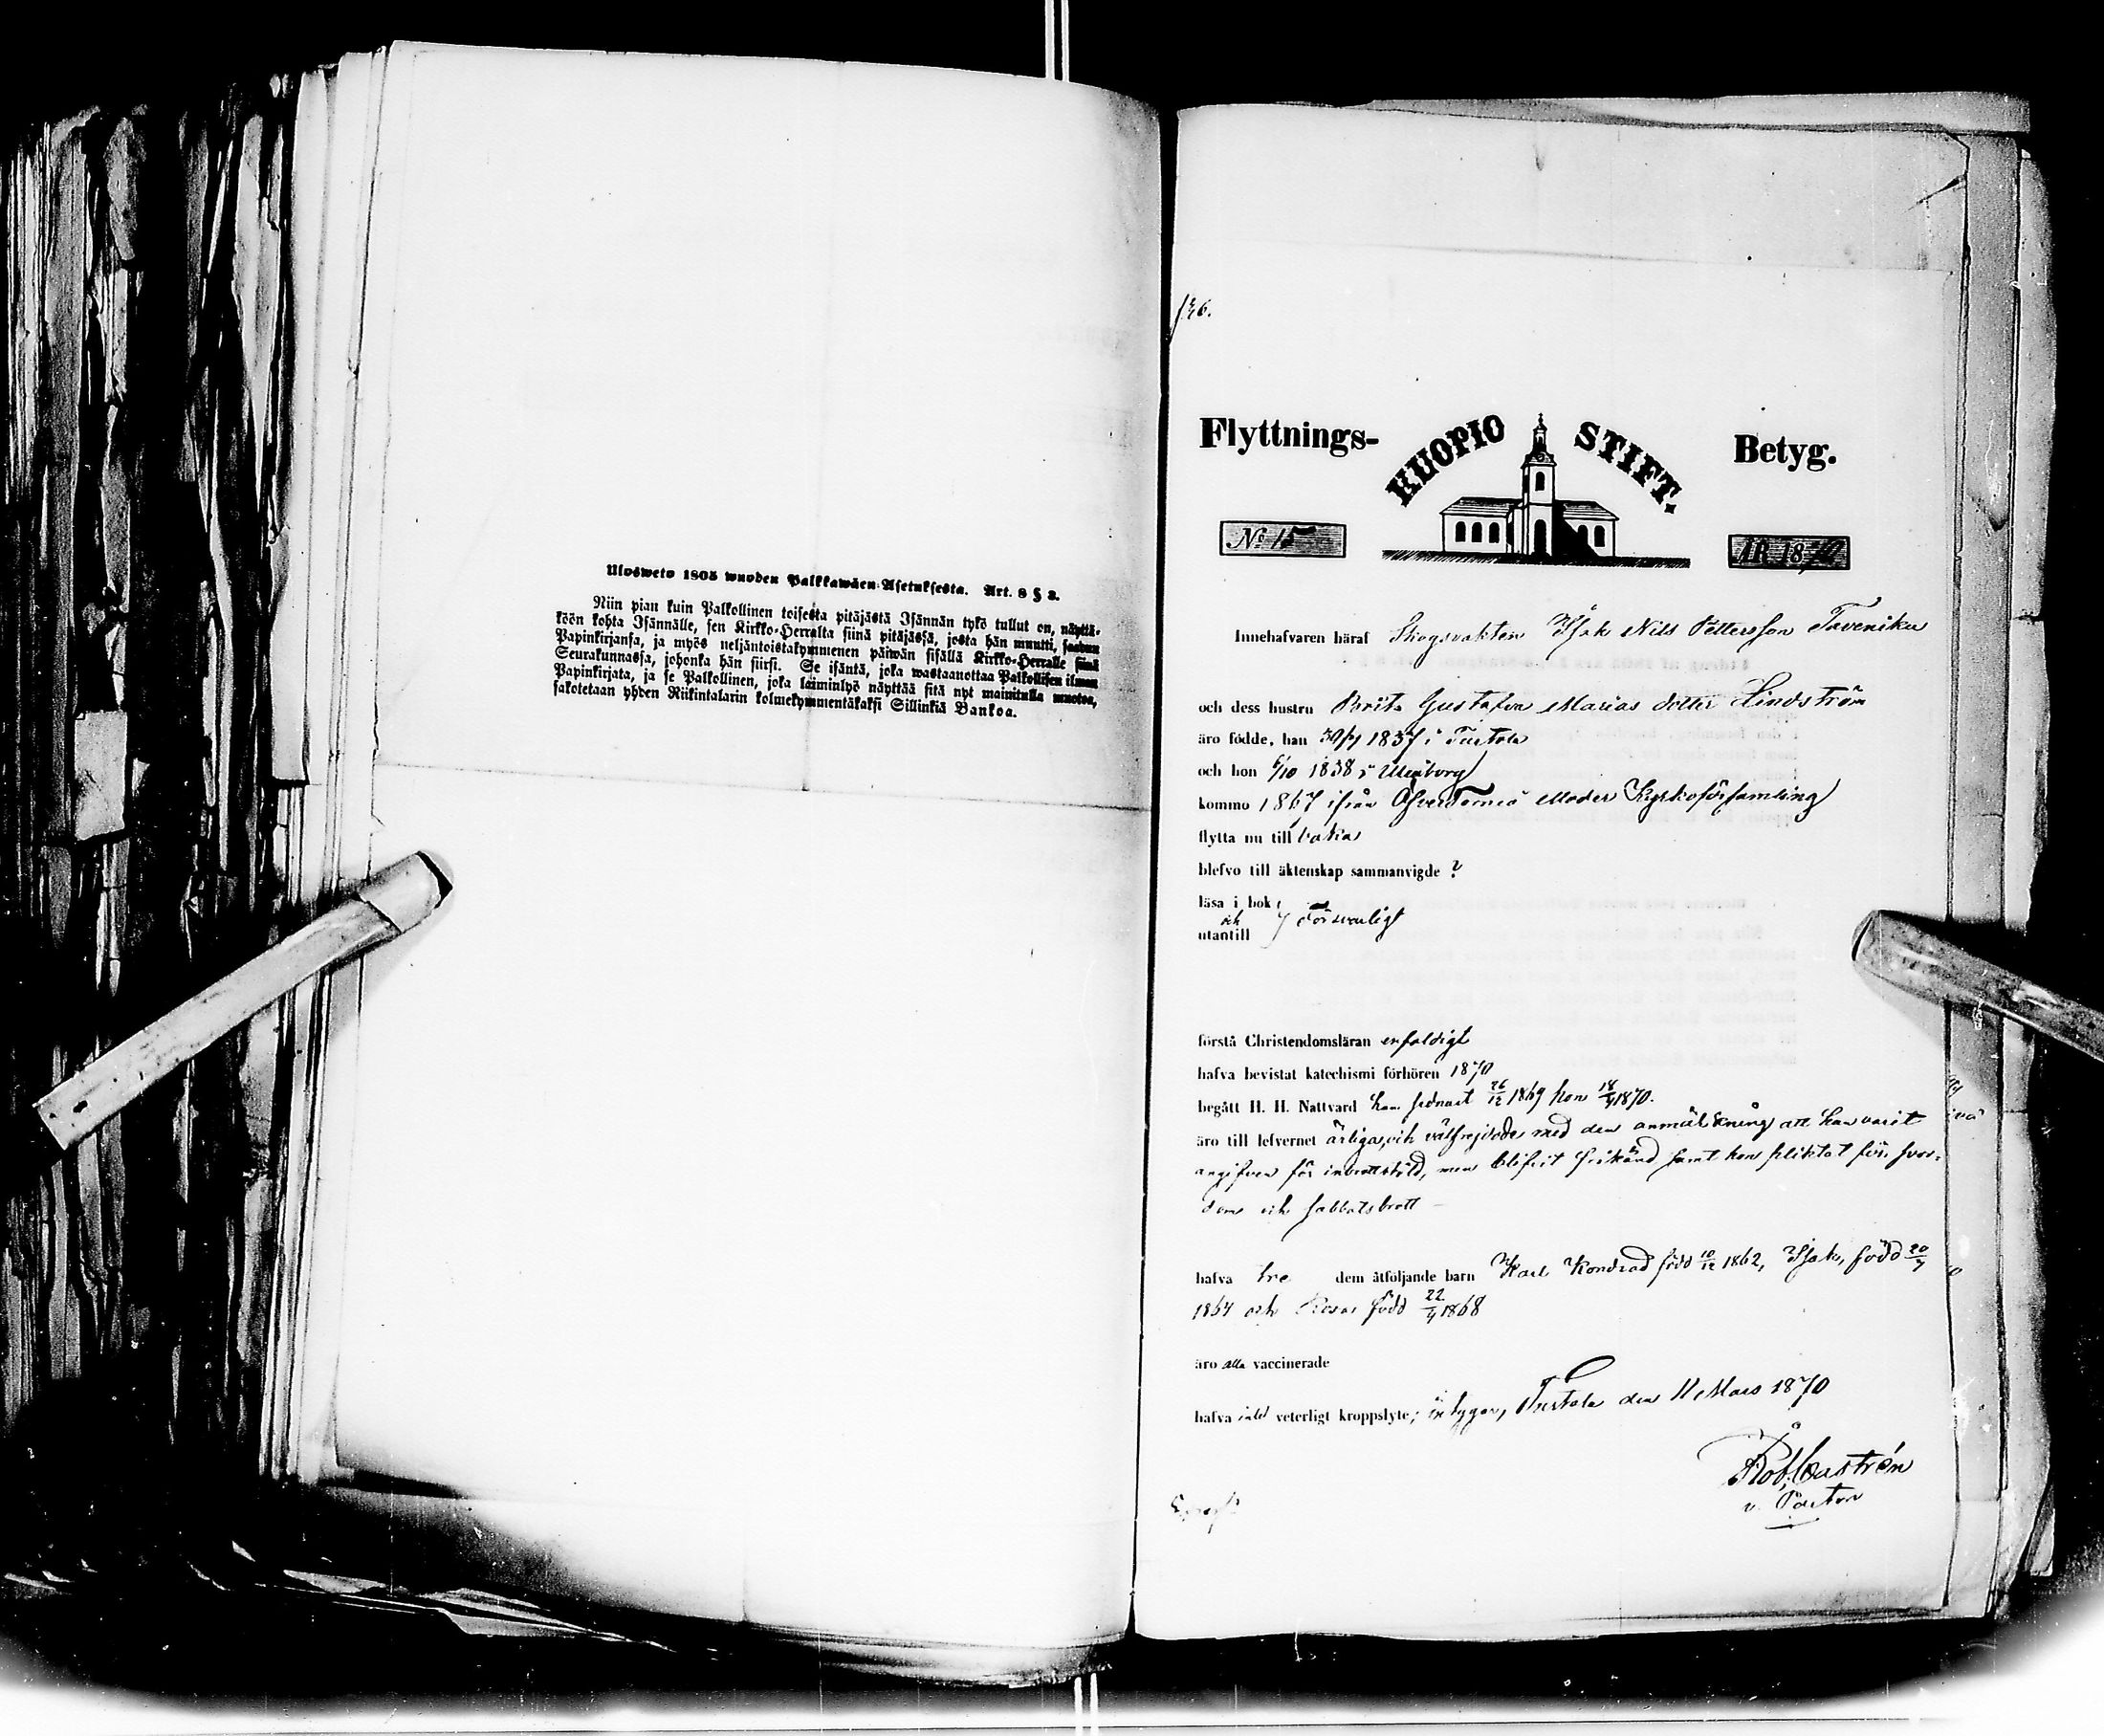 Ulosweto 1805 wuoden Palkkawäen-Asetuksesta. Art. 8 § 3.
Niin pian kuin Palkollinen toisesta pitäjästä Isännän tykö tullut on, näyttä-
köön kohta Isännälle, sen Kirkko-Herralta siinä pitäjässä, josta hän muutti, saadun
Papinkirjansa, ja myös neljäntoistakymmenen päiwän sisällä Kirkko-Herralle siinä
Seurakunnassa, johonka hän siirsi. Se isäntä, joka wastaanottaa Palkollisen ilman
Papinkirjata, ja se Palkollinen, joka laiminlyö näyttää sitä nyt mainitulla muotoa,
sakotetaan yhden Riikintalarin kolmekymmentäkaksi Sillinkiä Bankoa.
126.
Flyttnings- KUOPIO STIFT. Betyg.
No 15 ÅR 1870
Innehafvaren häraf Skogsvakten Isak Nils Pettersson Taveniku
och dess hustru Brita Gustafva Marias dotter Lindström
äro födde, han 30/7 1837 i Turtola
och hon 6/10 1838 i Uleåborg
kommo 1867 ifrån Öfver Torneå Moder Kyrkoförsamling
flytta nu till baka
blefvo till äktenskap sammanvigde ?
läsa i bok
och försvarligt
utantill
förstå Christendomsläran enfaldigt
hafva bevistat katechismi förhören 1870
begått H. H. Nattvard han sednast 26/12 1869 hon 18/4 1870.
äro till lefvernet ärliga och välfrejdade med den anmärkning att han varit
angifven för inbrottsstöld, men blifvit frikänd samt hon pliktat för svor-
dom och sabbatsbrott
hafva tre dem åtföljande barn Karl Kondrad född 10/12 1862, Isak, född 20/7
1864 och Rosa född 22/4 1868
äro alla vaccinerade
hafva intet veterligt kroppslyte; intygar, Turtola den 11 Mars 1870
Rob. Castrén
v. Pastor